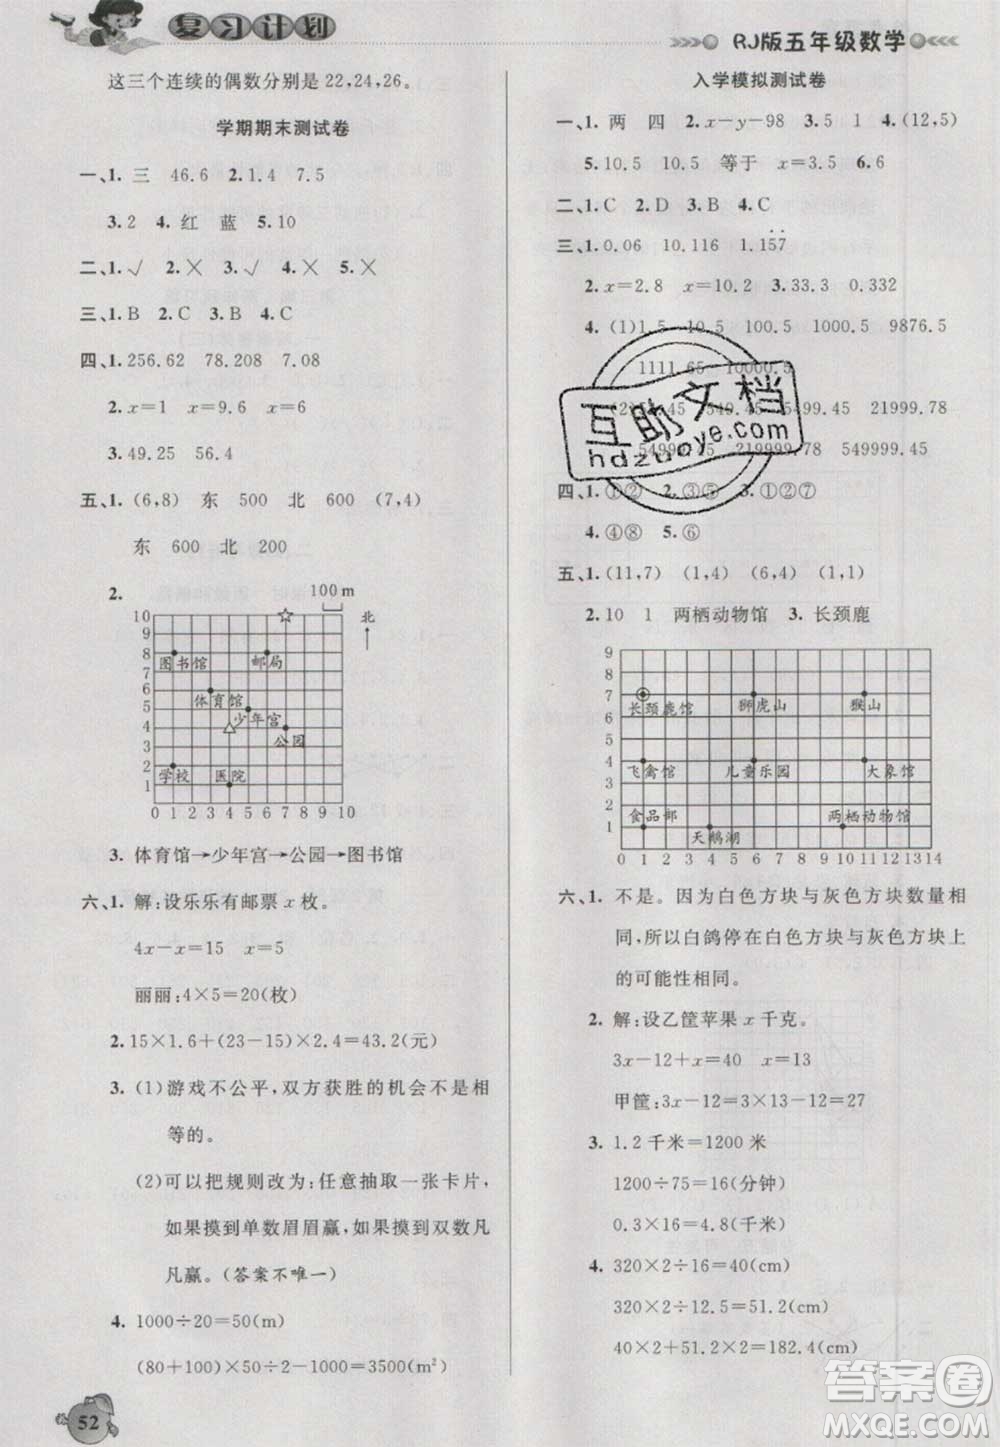 复习计划
RJ版五年级数学
这三个连续的偶数分别是 22,24,26。
学期期末测试卷
一、1. 三 46.6 2. 1.4 7.5
3. 2 4. 红 蓝 5. 10
二、1. √ 2. × 3. × 4. √ 5. ×
三、1. B 2. C 3. B 4. C
四、1. 256.62 78.208 7.08
2. x=1 x=9.6 x=6
3. 49.25 56.4
五、1. (6,8) 东 500 北 600 (7,4)
东 600 北 200
2.
100 m
北
10
9
8
7
6
5
4
3
2
1
图书馆
邮局
体育馆
少年宫
公园
学校
医院
0 1 2 3 4 5 6 7 8 9 10
3. 体育馆→少年宫→公园→图书馆
六、1. 解:设乐乐有邮票 x 枚。
4x-x=15 x=5
丽丽:4×5=20(枚)
2. 15×1.6+(23-15)×2.4=43.2(元)
3. (1)游戏不公平,双方获胜的机会不是相
等的。
(2)可以把规则改为:任意抽取一张卡片,
如果摸到单数眉眉赢,如果摸到双数凡
凡赢。(答案不唯一)
4. 1000÷20=50(m)
(80+100)×50÷2-1000=3500(m²)
52
入学模拟测试卷
一、1. 两 四 2. x-y-98 3. 5 1 4. (12,5)
5. 10.5 10.5 等于 x=3.5 6. 6
二、1. C 2. D 3. B 4. C
三、1. 0.06 10.116 1.15̇7̇
2. x=2.8 x=10.2 3. 33.3 0.332
4. (1)1.5 10.5 100.5 1000.5 9876.5
1111.65 10000.5
(2)51.45 549.45 5499.45 21999.78
54999.45 219999.78 549999.45
四、1. ①② 2. ③⑤ 3. ①②⑦
4. ④⑧ 5. ⑥
五、1. (11,7) (1,4) (6,4) (1,1)
2. 10 1 两栖动物馆 3. 长颈鹿
9
8
7
6
5
4
3
2
1
长颈鹿馆
狮虎山
猴山
飞禽馆
儿童乐园
大象馆
食品部
天鹅湖
两栖动物馆
0 1 2 3 4 5 6 7 8 9 10 11 12 13 14
六、1. 不是。因为白色方块与灰色方块数量相
同,所以白鸽停在白色方块与灰色方块上
的可能性相同。
2. 解:设乙筐苹果 x 千克。
3x-12+x=40 x=13
甲筐:3x-12=3×13-12=27
3. 1.2 千米=1200 米
1200÷75=16(分钟)
0.3×16=4.8(千米)
4. 320×2÷16=40(cm)
320×2÷12.5=51.2(cm)
40×2+51.2×2=182.4(cm)
互助文档
hdzuoye.com
答案圈
MXQE.COM